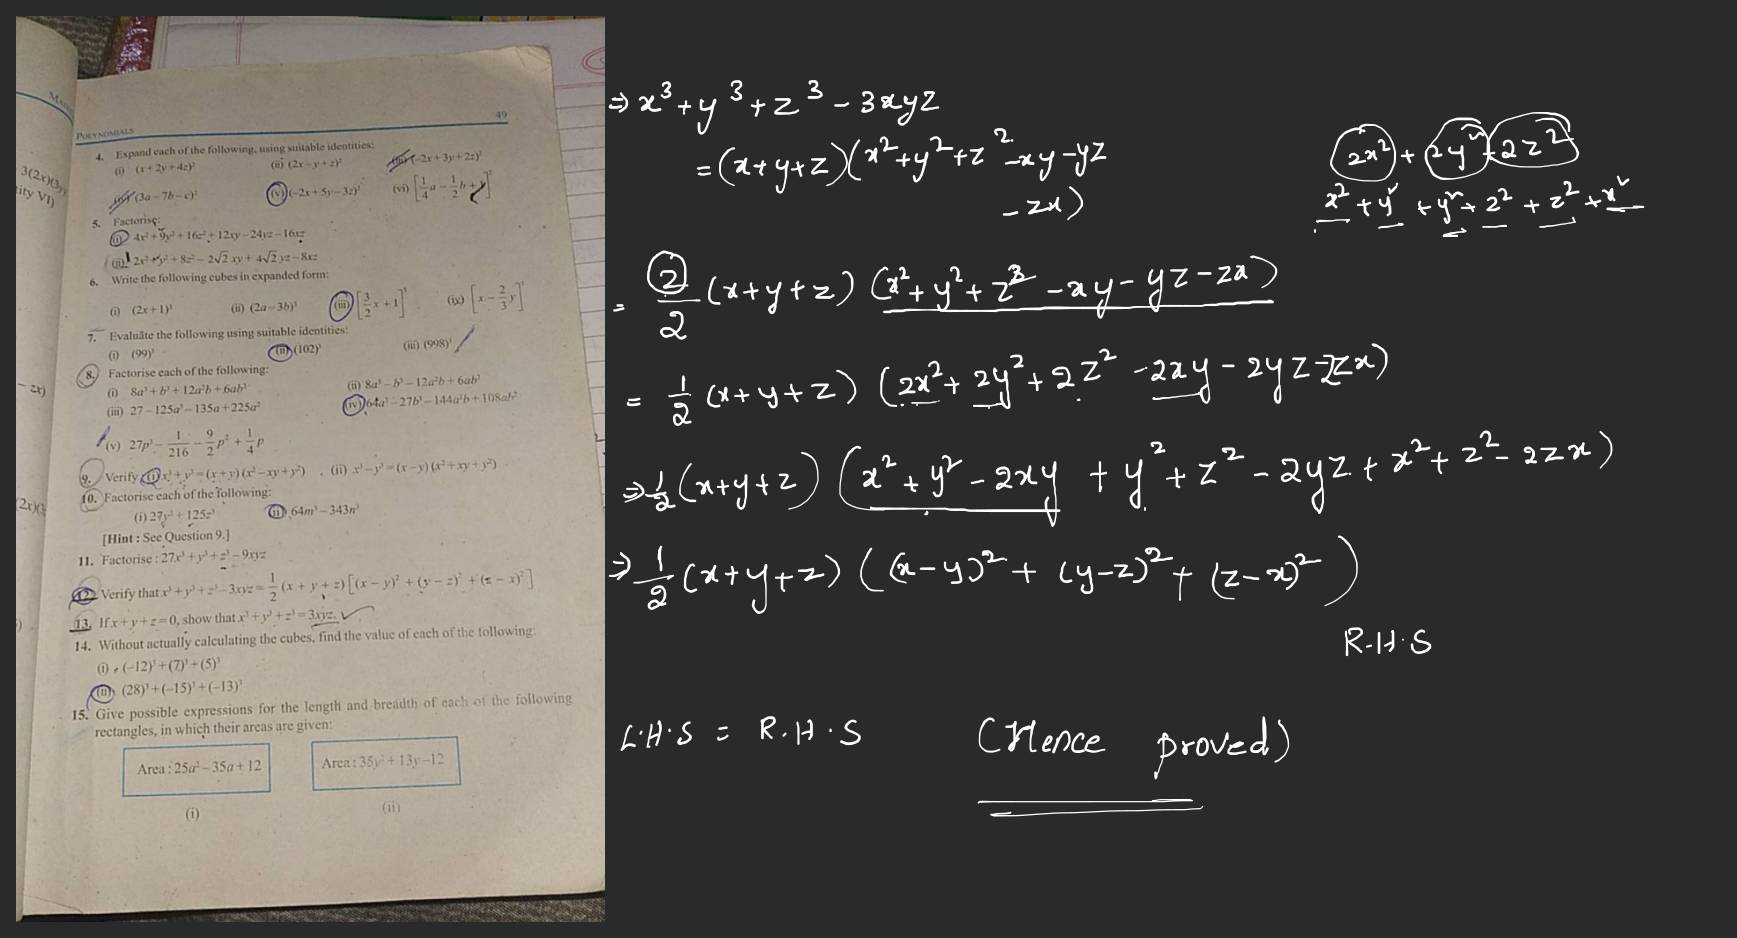 MA
3(2x)(3y)
ity VI)
- zx)
(2x)(3
POLYNOMIALS 49
4. Expand each of the following, using suitable identities:
(i) (x+2y+4z)² (ii) (2x-y+z)² (iii) (-2x+3y+2z)²
(iv) (3a-7b-c)² (v) (-2x+5y-3z)² (vi) [1/4 a - 1/2 b + 1]²
5. Factorise:
(i) 4x²+9y²+16z²+12xy-24yz-16xz
(ii) 2x²+y²+8z²-2√2 xy+4√2 yz-8xz
6. Write the following cubes in expanded form:
(i) (2x+1)³ (ii) (2a-3b)³ (iii) [3/2 x + 1]³ (iv) [x - 2/3 y]³
7. Evaluate the following using suitable identities:
(i) (99)³ (ii) (102)³ (iii) (998)³
8. Factorise each of the following:
(i) 8a³+b³+12a²b+6ab² (ii) 8a³-b³-12a²b+6ab²
(iii) 27-125a³-135a+225a² (iv) 64a³-27b³-144a²b+108ab²
(v) 27p³ - 1/216 - 9/2 p² + 1/4 p
9. Verify: (i) x³+y³=(x+y)(x²-xy+y²) (ii) x³-y³=(x-y)(x²+xy+y²)
10. Factorise each of the following:
(i) 27y³+125z³ (ii) 64m³-343n³
[Hint : See Question 9.]
11. Factorise : 27x³+y³+z³-9xyz
12. Verify that x³+y³+z³-3xyz = 1/2 (x+y+z)[(x-y)²+(y-z)²+(z-x)²]
13. If x+y+z=0, show that x³+y³+z³=3xyz.
14. Without actually calculating the cubes, find the value of each of the following:
(i) (-12)³+(7)³+(5)³
(ii) (28)³+(-15)³+(-13)³
15. Give possible expressions for the length and breadth of each of the following
rectangles, in which their areas are given:
Area : 25a²-35a+12 Area : 35y²+13y-12
(i) (ii)
⇒ x³+y³+z³-3xyz
= (x+y+z)(x²+y²+z²-xy-yz
-zx)
2x²+2y²+2z²
x²+y²+y²+z²+z²+x²
= 2/2 (x+y+z)(x²+y²+z²-xy-yz-zx)
= 1/2 (x+y+z)(2x²+2y²+2z²-2xy-2yz-2zx)
⇒ 1/2 (x+y+z)(x²+y²-2xy+y²+z²-2yz+x²+z²-2zx)
⇒ 1/2 (x+y+z)((x-y)²+(y-z)²+(z-x)²)
R.H.S
L.H.S = R.H.S (Hence proved)